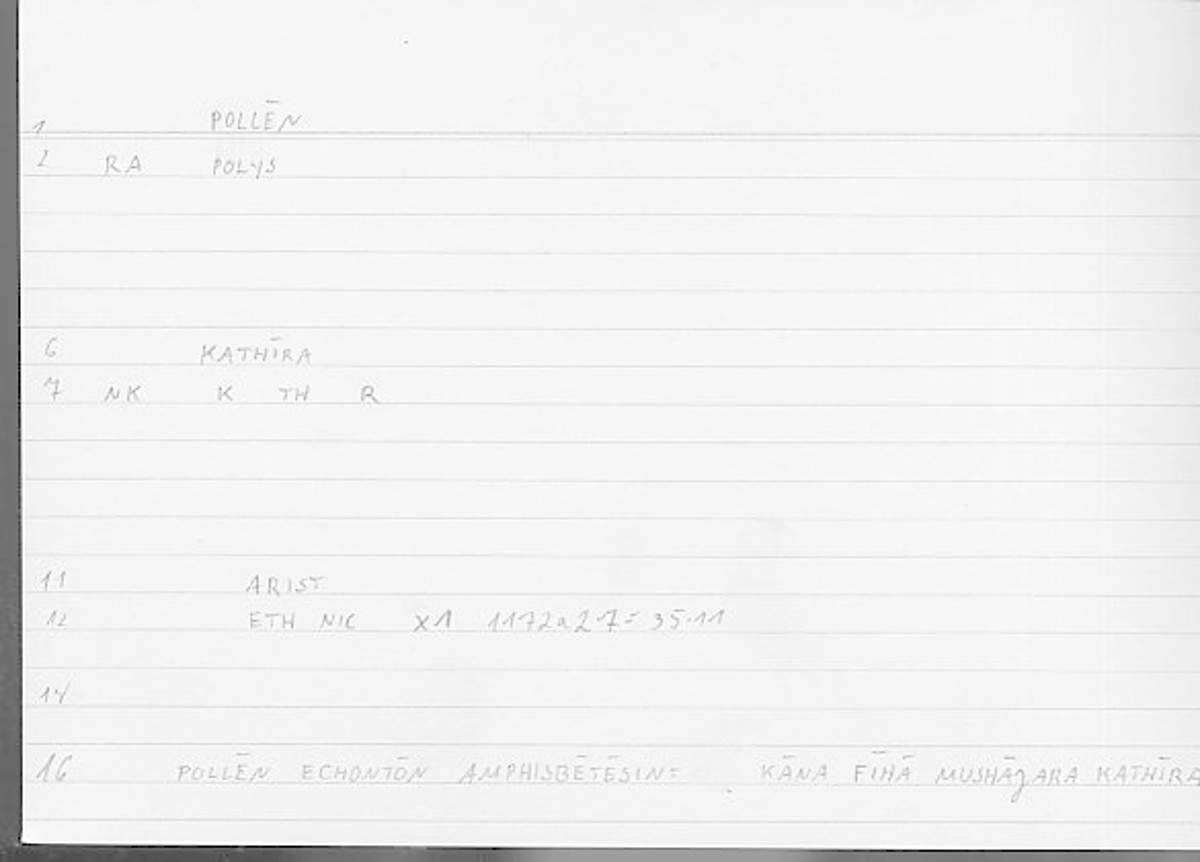 1 POLLĒN
2 RA POLYS
6 KATHĪRA
7 NK K TH R
11 ARIST
12 ETH NIC X1 1172a27=35.11
14
16 POLLĒN ECHONTŌN AMPHISBĒTĒSIN= KĀNA FĪHĀ MUSHĀJARA KATHĪRA